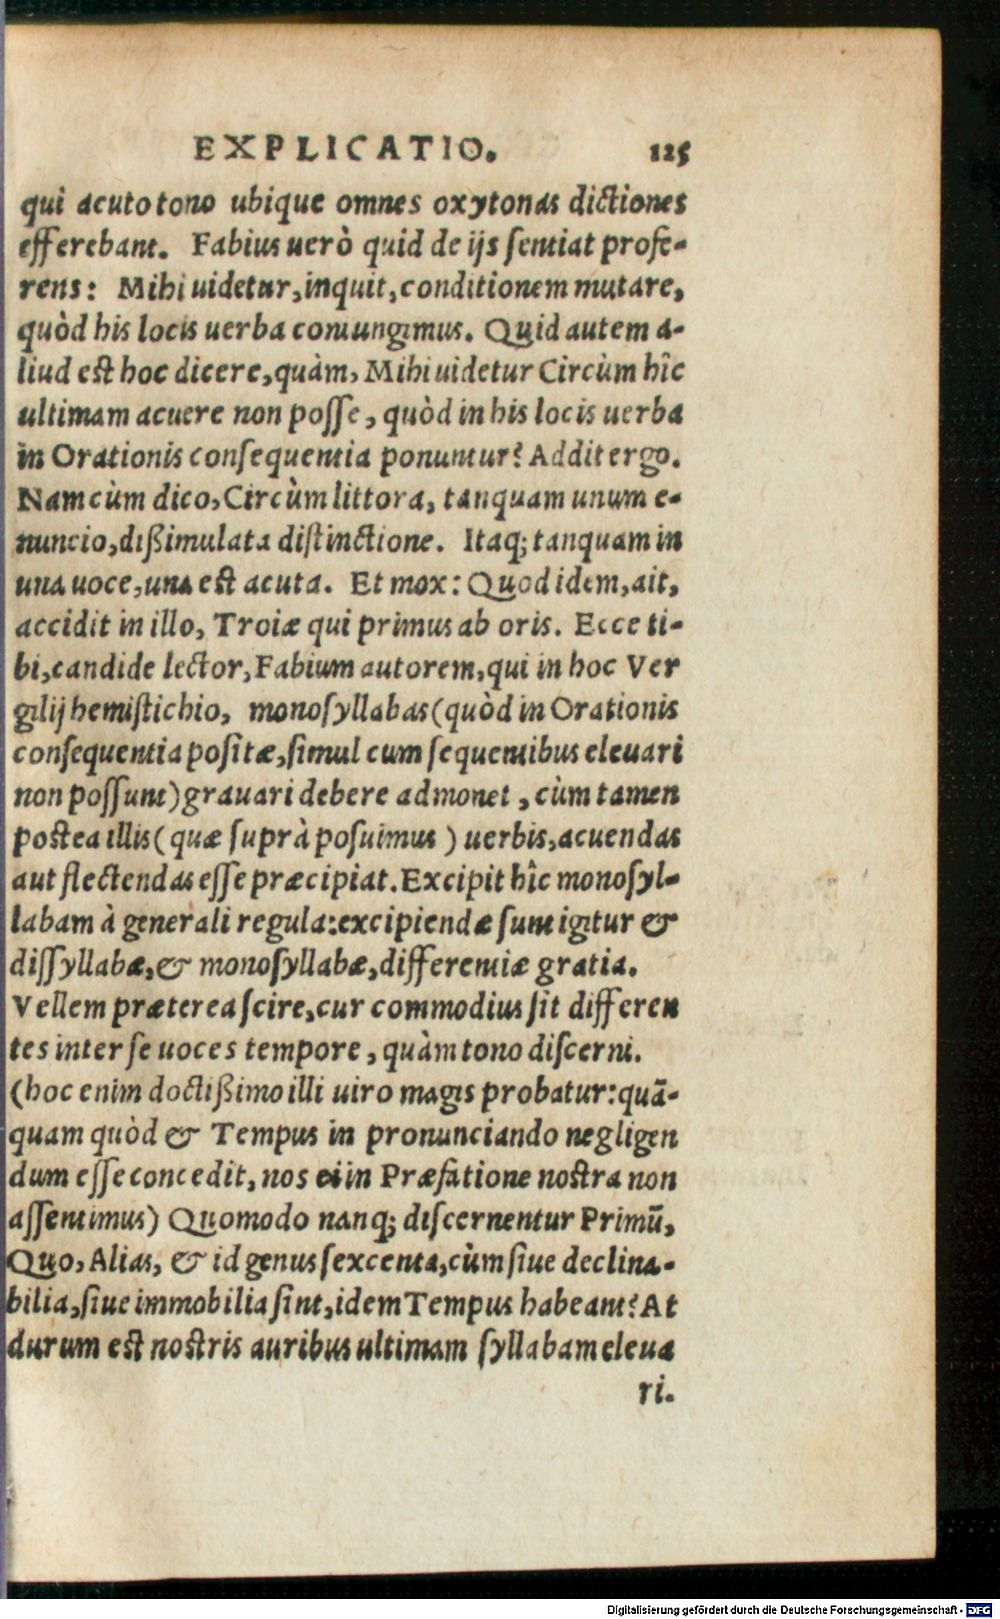 EXPLICATIO. 125
qui acuto tono ubique omnes oxytonas dictiones
efferebant. Fabius uerò quid de ijs ſentiat profe-
rens: Mihi uidetur, inquit, conditionem mutare,
quòd his locis uerba coniungimus. Quid autem a-
liud est hoc dicere, quàm, Mihi uidetur Circùm hîc
ultimam acuere non poſſe, quòd in his locis uerba
in Orationis conſequentia ponuntur? Addit ergo.
Nam cùm dico, Circùm littora, tanquam unum e-
nuncio, dißimulata distinctione. Itaq; tanquam in
una uoce, una est acuta. Et mox: Quod idem, ait,
accidit in illo, Troiæ qui primus ab oris. Ecce ti-
bi, candide lector, Fabium autorem, qui in hoc Ver
gilij hemistichio, monoſyllabas (quòd in Orationis
conſequentia poſitæ, ſimul cum ſequentibus eleuari
non poſſunt) grauari debere admonet, cùm tamen
postea illis (quæ ſuprà poſuimus) uerbis, acuendas
aut flectendas eſſe præcipiat. Excipit hîc monoſyl-
labam à generali regula: excipiendæ ſunt igitur &
diſſyllabæ, & monoſyllabæ, differentiæ gratia.
Vellem præterea ſcire, cur commodius ſit differen
tes inter ſe uoces tempore, quàm tono diſcerni.
(hoc enim doctißimo illi uiro magis probatur: quã-
quam quòd & Tempus in pronunciando negligen
dum eſſe concedit, nos ei in Præfatione nostra non
aſſentimus) Quomodo nanq; diſcernentur Primũ,
Quo, Alias, & id genus ſexcenta, cùm ſiue declina-
bilia, ſiue immobilia ſint, idem Tempus habeant? At
durum est nostris auribus ultimam ſyllabam eleua
ri.
Digitalisierung gefördert durch die Deutsche Forschungsgemeinschaft - DFG